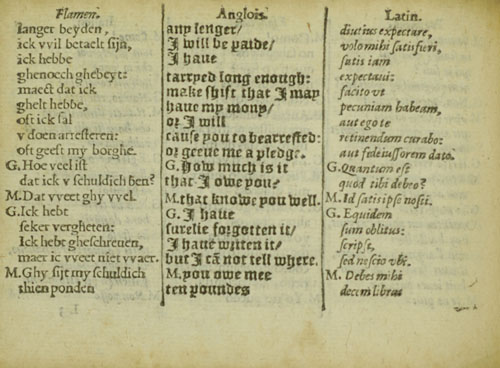 Flamen.
langer beyden,
ick vvil betaelt sijn,
ick hebbe
ghenoech ghebeyt:
maect dat ick
ghelt hebbe,
oft ick sal
v doen arresteren:
oft geeft my borghe.
G. Hoe veel ist
dat ick v schuldich ben?
M. Dat vveet ghy vvel.
G. Ick hebt
seker vergheten:
Ick hebt gheschreuen,
maer ic vveet niet vvaer.
M. Ghy sijt my schuldich
thien ponden
Anglois.
any lenger/
I will be paide/
I haue
tarryed long enough:
make shift that I may
haue my mony/
or I will
cause you to bearrested:
or geeue me a pledge.
G. How much is it
that I owe you?
M. that knowe you well.
G. I haue
surelie forgotten it/
I haue written it/
but I cā not tell where.
M. you owe mee
ten poundes
Latin.
diutius expectare,
volo mihi satisfieri,
satis iam
expectaui:
facito vt
pecuniam habeam,
aut ego te
retinendum curabo:
aut fideiussorem dato.
G. Quantum est
quod tibi debeo?
M. Id satis ipse nosti.
G. Equidem
sum oblitus:
scripsi,
sed nescio vbi.
M. Debes mihi
decem libras